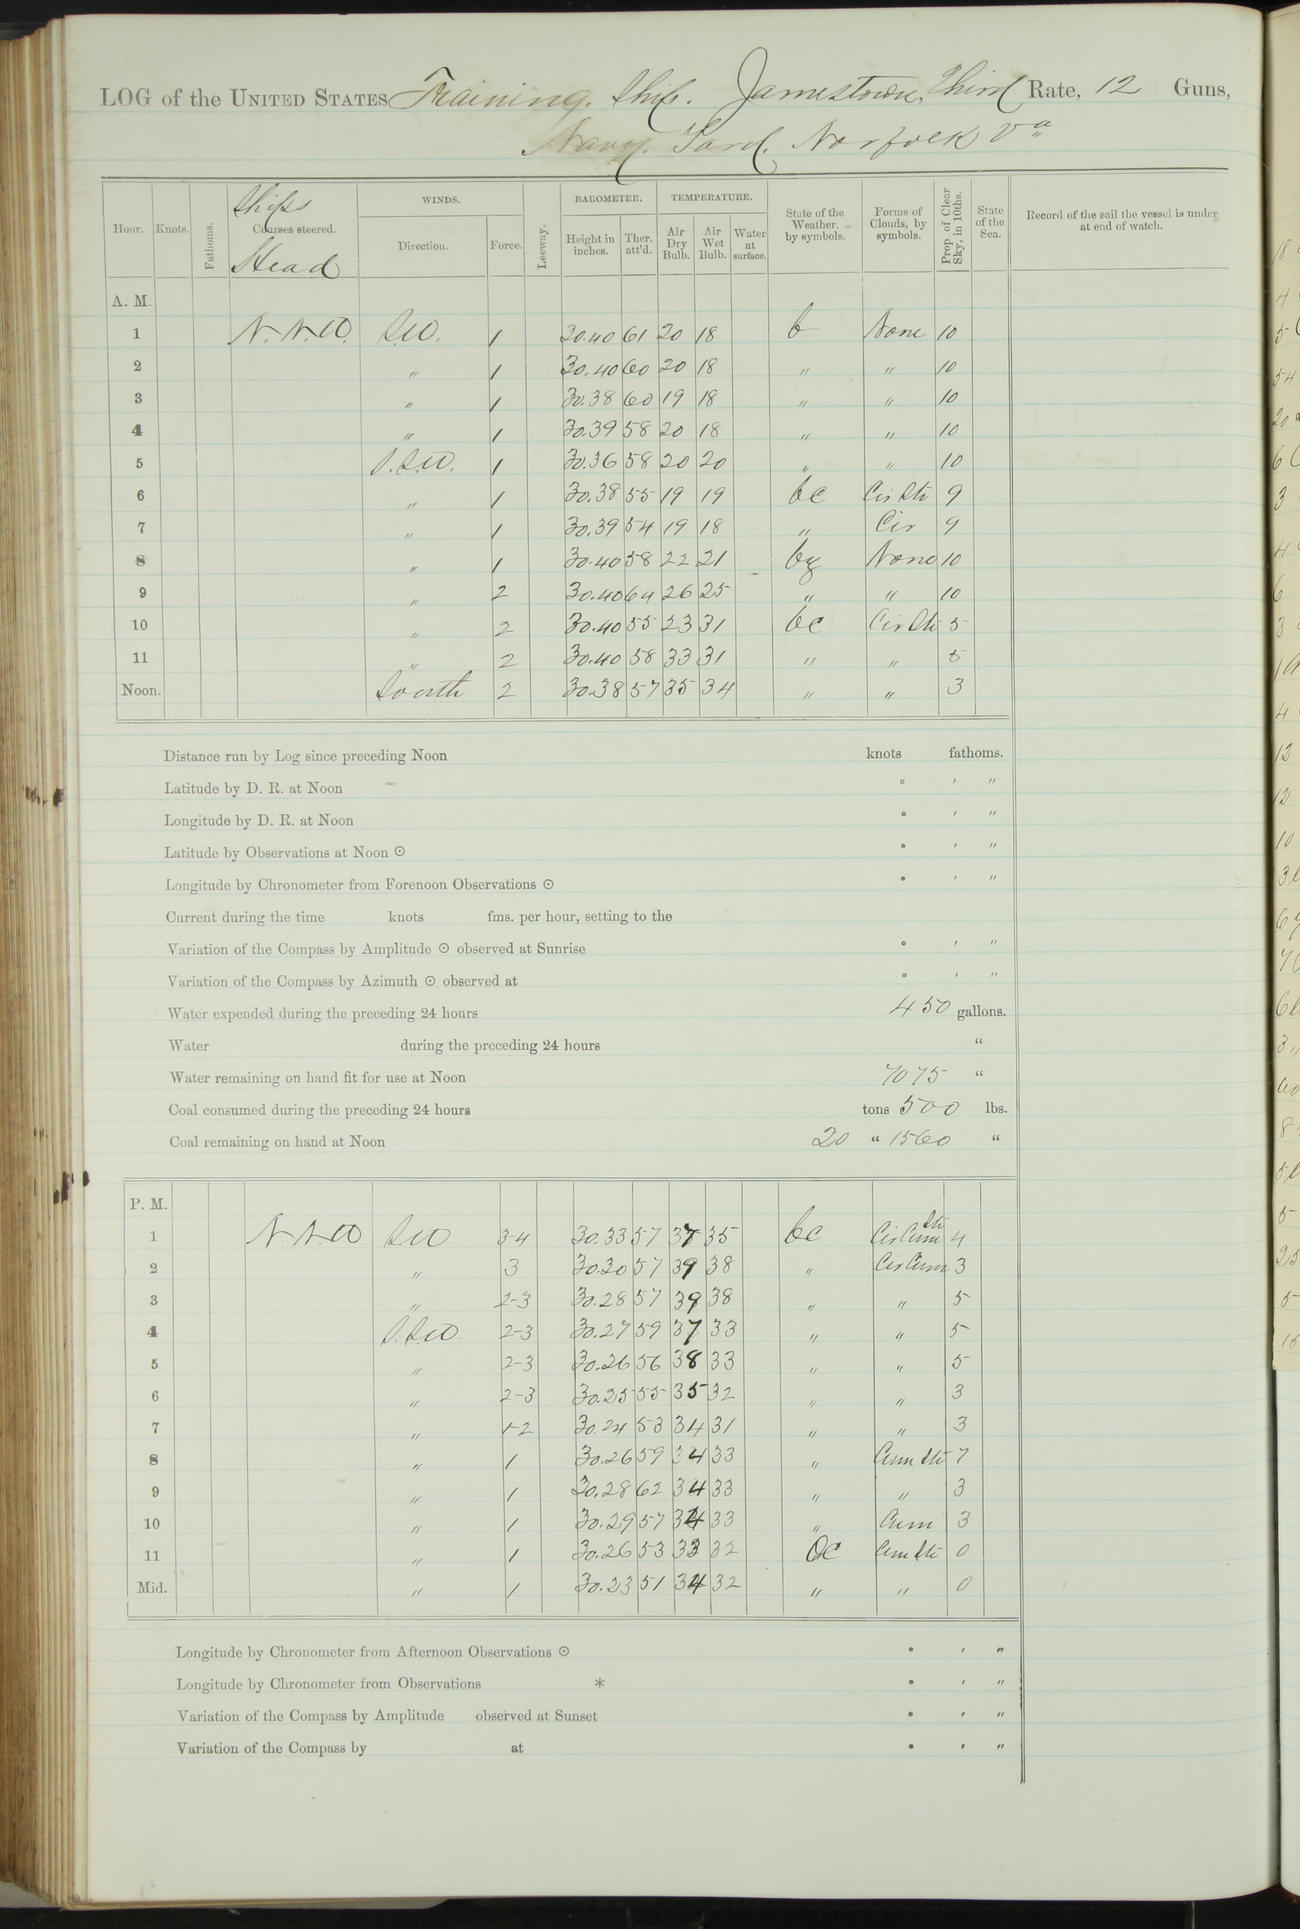 LOG of the UNITED STATES Training Ship. Jamestown, Third Rate, 12 Guns,
Navy Yard, Norfolk Va
Hour. Knots. Fathoms. Ships Courses steered. Head WINDS. Direction. Force. Leeway. BAROMETER. Height in inches. Ther. att'd. TEMPERATURE. Air Dry Bulb. Air Wet Bulb. Water at surface. State of the Weather, by symbols. Forms of Clouds, by symbols. Prop. of Clear Sky, in 10ths. State of the Sea. Record of the sail the vessel is under at end of watch.
A. M.
1 N.N.W. S.W. 1 30.40 61 20 18 b None 10
2 " 1 30.40 60 20 18 " " 10
3 " 1 30.38 60 19 18 " " 10
4 " 1 30.39 58 20 18 " " 10
5 S.S.W. 1 30.36 58 20 20 " " 10
6 " 1 30.38 55 19 19 bc Cir Str 9
7 " 1 30.39 54 19 18 " Cir 9
8 " 1 30.40 58 22 21 bz None 10
9 " 2 30.40 64 26 25 " " 10
10 " 2 30.40 55 23 31 bc Cir Str 5
11 " 2 30.40 58 33 31 " " 5
Noon. South 2 30.38 57 35 34 " " 3
Distance run by Log since preceding Noon knots fathoms.
Latitude by D. R. at Noon ° ' "
Longitude by D. R. at Noon ° ' "
Latitude by Observations at Noon ☉ ° ' "
Longitude by Chronometer from Forenoon Observations ☉ ° ' "
Current during the time knots fms. per hour, setting to the
Variation of the Compass by Amplitude ☉ observed at Sunrise ° ' "
Variation of the Compass by Azimuth ☉ observed at ° ' "
Water expended during the preceding 24 hours 450 gallons.
Water during the preceding 24 hours "
Water remaining on hand fit for use at Noon 7075 "
Coal consumed during the preceding 24 hours tons 500 lbs.
Coal remaining on hand at Noon 20 " 1560 "
P. M.
1 N.N.W S.W 3-4 30.33 57 37 35 bc Cir Cum Str 4
2 " 3 30.30 57 39 38 " Cir Cum 3
3 " 2-3 30.28 57 39 38 " " 5
4 S.S.W 2-3 30.27 59 37 33 " " 5
5 " 2-3 30.26 56 38 33 " " 5
6 " 2-3 30.25 55 35 32 " " 3
7 " 1-2 30.24 53 34 31 " " 3
8 " 1 30.26 59 34 33 " Cum Str 7
9 " 1 30.28 62 34 33 " " 3
10 " 1 30.29 57 34 33 " Cum 3
11 " 1 30.26 53 33 32 oc Cum Str 0
Mid. " 1 30.23 51 34 32 " " 0
Longitude by Chronometer from Afternoon Observations ☉ ° ' "
Longitude by Chronometer from Observations * ° ' "
Variation of the Compass by Amplitude observed at Sunset ° ' "
Variation of the Compass by at ° ' "